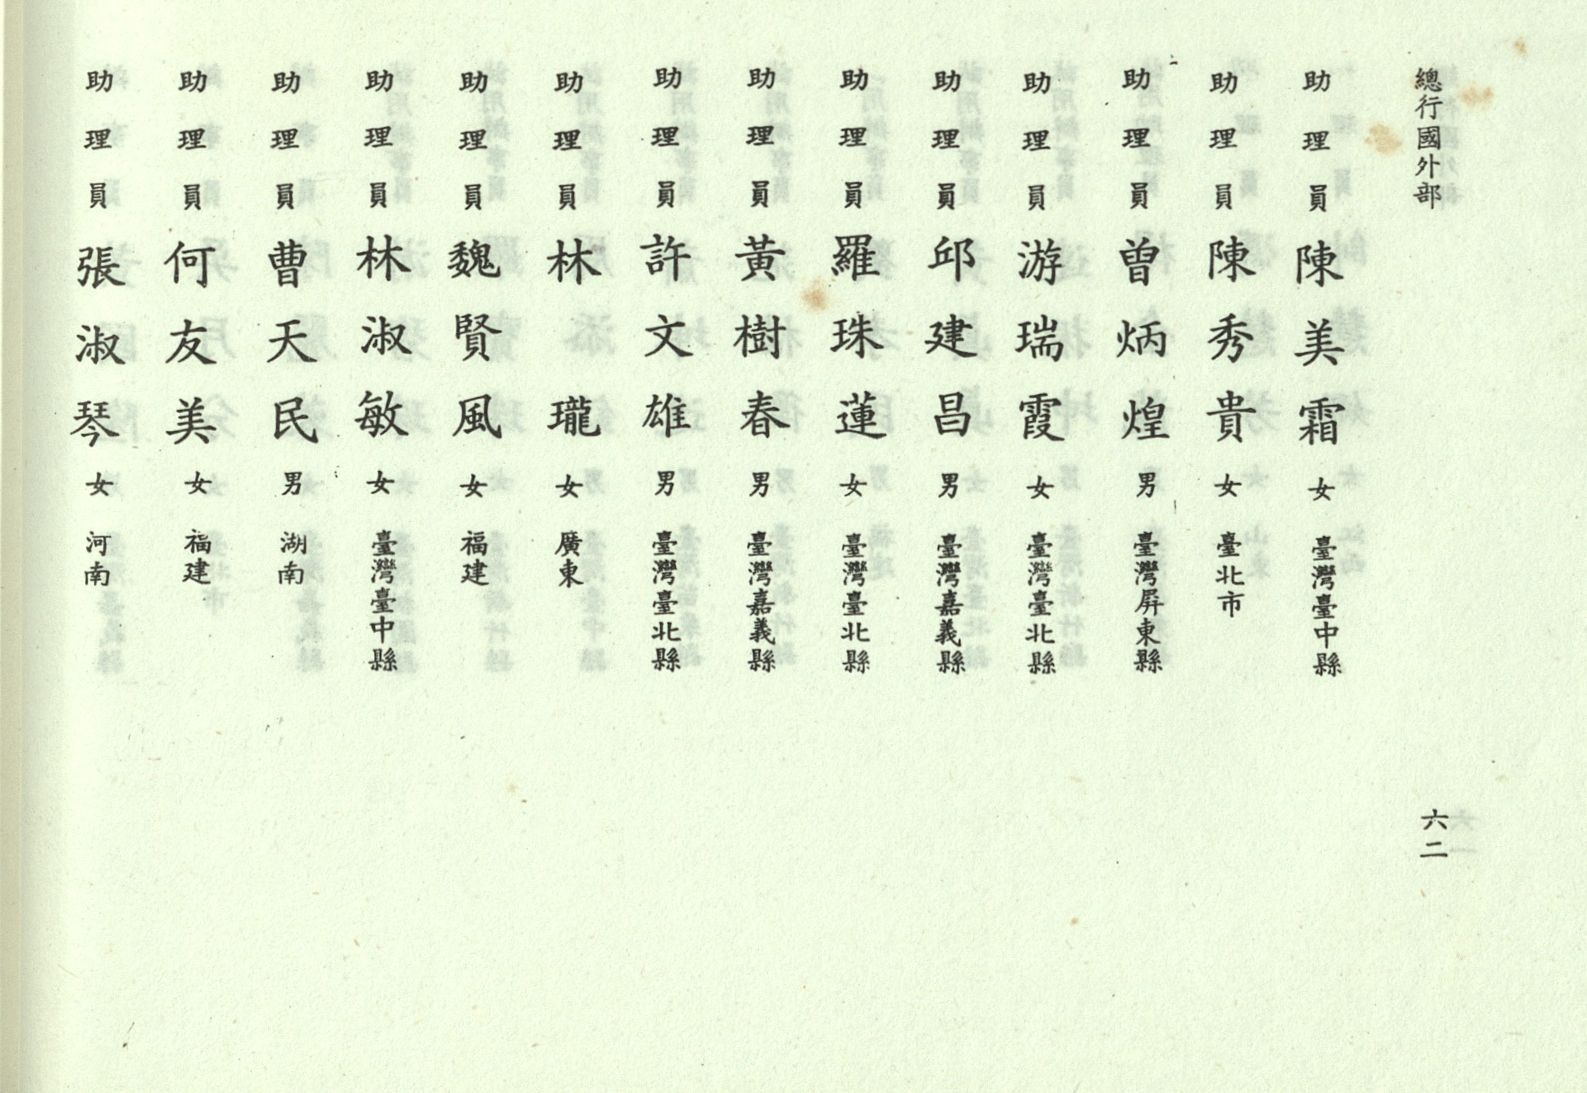 總行國外部
六二
助理員 陳美霜 女 臺灣臺中縣
助理員 陳秀貴 女 臺北市
助理員 曾炳煌 男 臺灣屏東縣
助理員 游瑞霞 女 臺灣臺北縣
助理員 邱建昌 男 臺灣嘉義縣
助理員 羅珠蓮 女 臺灣臺北縣
助理員 黃樹春 男 臺灣嘉義縣
助理員 許文雄 男 臺灣臺北縣
助理員 林瓏 女 廣東
助理員 魏賢風 女 福建
助理員 林淑敏 女 臺灣臺中縣
助理員 曹天民 男 湖南
助理員 何友美 女 福建
助理員 張淑琴 女 河南